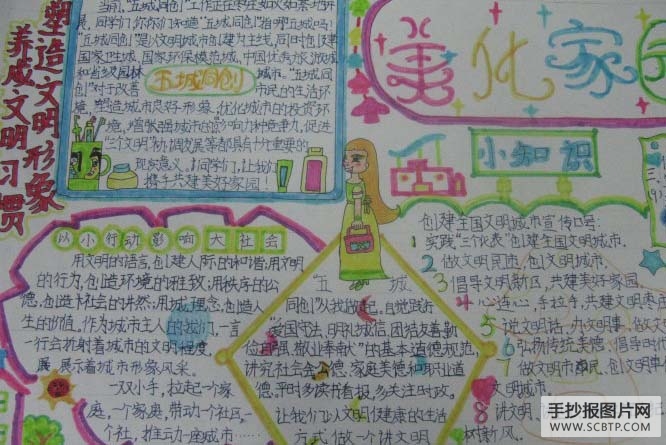 塑造文明形象
养成文明习惯
当前,"五城同创"工作正在枣庄如火如荼地开
展,同学们,你们知道"五城同创"指哪五城吗?
"五城同创"是以文明城市创建为主线,同时创建
国家卫生城、国家环保模范城、中国优秀旅游城
和省级园林城市。"五城同
五城同创
创"对于改善市民的生活环
境,塑造城市良好形象,优化城市的投资环
境,增强城市的影响力和竞争力,促进
三个文明协调发展等都具有十分重要的
现实意义。同学们,让我们
携手共建美好家园!
美化家
小知识
以小行动影响大社会
用文明的语言,创建人际的和谐;用文明
的行为,创造环境的雅致;用秩序的公
德,创造社会的井然;用城市理念,创造人
生的价值。作为城市主人的我们,一言
一行会折射着城市的文明程度,
展示着城市形象风采。
一双小手,拉起一个家
庭,一个家庭,带动一个社区,一
个社,推动一座城市……
五城
同创"从我做起,自觉践行
"爱国守法,明礼诚信,团结友善,勤
俭自强,敬业奉献"的基本道德规范,
讲究社会公德、家庭美德和职业道
德。平时多读书看报,多关注时政。
让我们以文明健康的生活
方式做一个讲文明
创建全国文明城市宣传口号:
1 实践"三个代表"创建全国文明城市.
2 做文明民市 创文明城市.
3 倡导文明新区,共建美好家园
4 心连心,手拉手,共建文明枣
5 说文明话,办文明事,做文
6 弘扬传统美德,倡导时代
7 做文明市民,创文明
文明城市.
8 讲文明
树新风.
手抄报图片网
WWW.SCBTP.COM